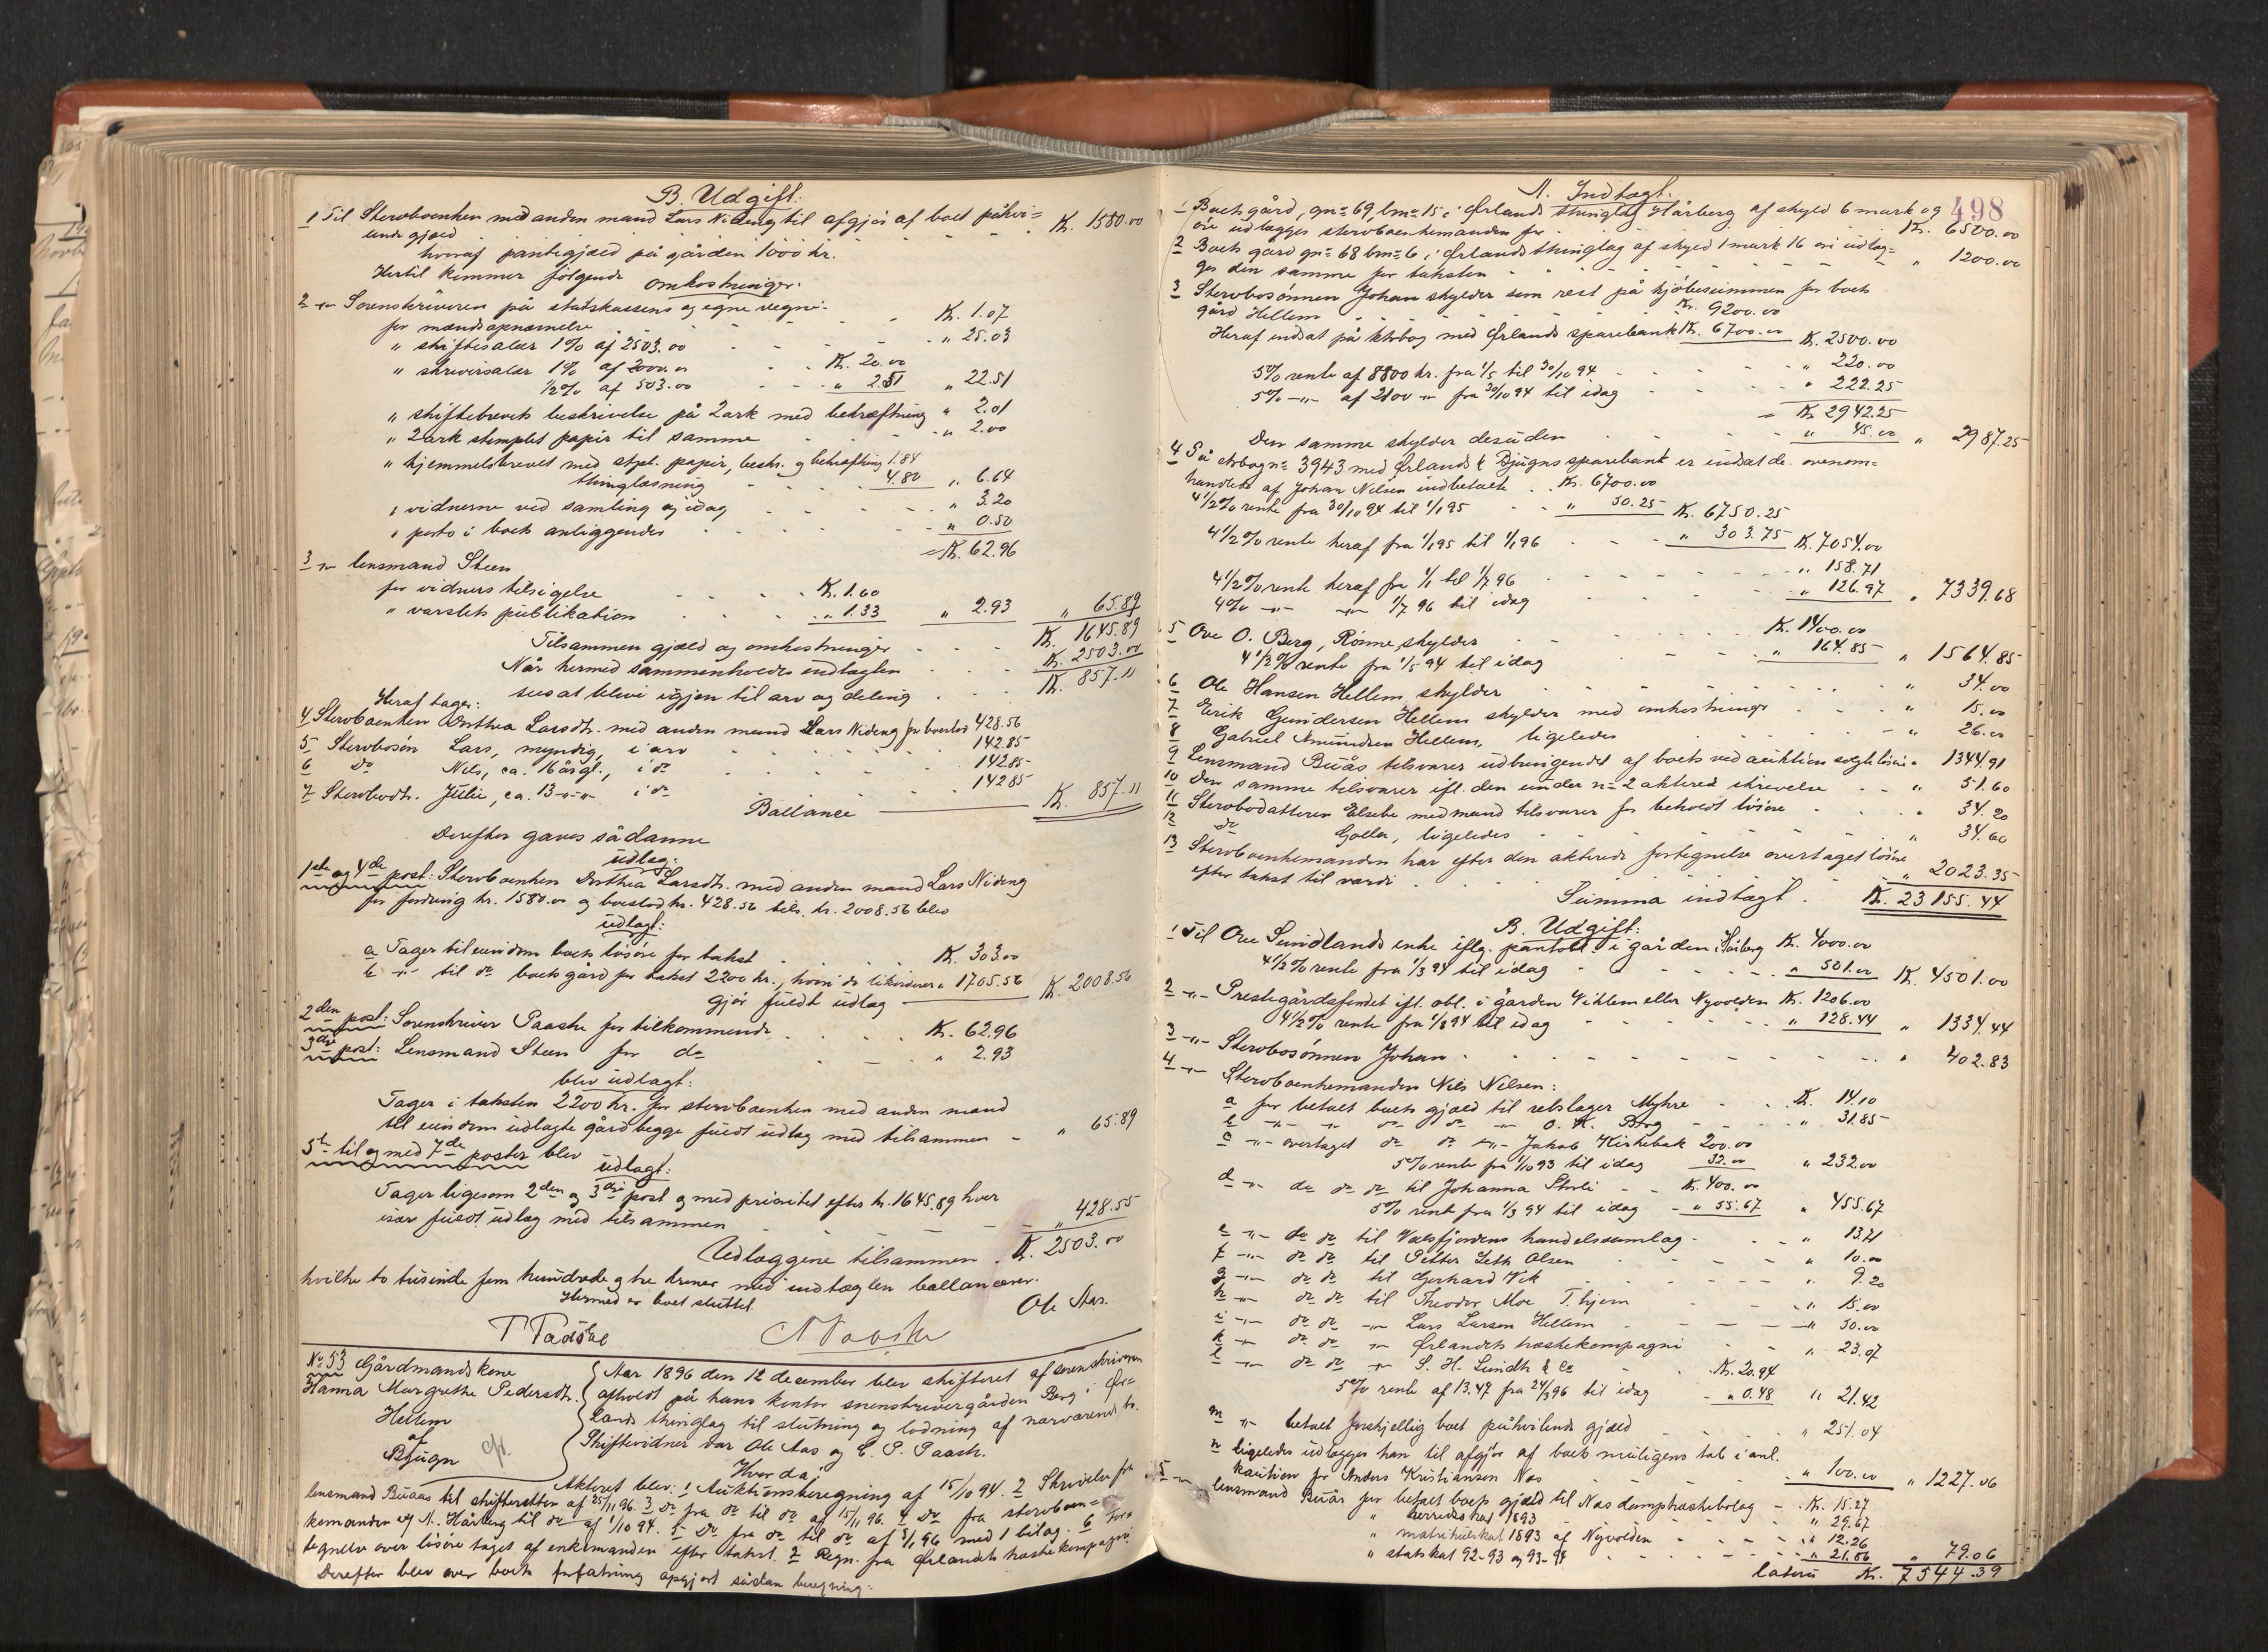 B. Udgift:
1 Til Sterboenken med anden mand Lars Nideng til afgjør af boet påhvi-
lende gjæld Kr. 1580.00
hvoraf pantegjæld på gården 1000 kr.
Hertil kommer følgende
omkostninger:
2 -"- Sorenskriveren på statskassens og egne vegne:
for mændsopnævnelse Kr. 1.07
" skiftesalær 1% af 2503.00 " 25.03
" skriversalær 1% af 2000.00 Kr. 20.00
½% af 503.00 " 2.51 " 22.51
" skiftebrevets beskrivelse på 2 ark med bekræftning " 2.01
" 2 ark stemplet papir til samme " 2.00
" hjemmelsbrevet med stpl. papir, beskr. og bekræftning 1.84
thinglæsning 4.80 " 6.64
" vidnerne ved samling og idag " 3.20
" porto i boets anliggender " 0.50
Kr. 62.96
3 -"- lensmand Steen
for vidners tilsigelse Kr. 1.60
" varslets publikation " 1.33 " 2.93 " 65.89
Tilsammen gjæld og omkostninger Kr. 1645.89
Når hermed sammenholdes indtægten Kr. 2503.00
sees at blive igjen til arv og deling Kr. 857.11
Heraf tager:
4 Sterboenken Dorthea Larsdtr. med anden mand Lars Nideng for boeslod 428.56
5 Sterbosøn Lars, myndig, i arv 142.85
6 Do Nils, ca. 16 år gl., i do 142.85
7 Sterbodtr. Julie, ca. 13 -"- -"- i do 142.85 Kr. 857.11
Ballance
Derefter gaves sådanne
udlæg:
1ste og 4de post: Sterboenken Dorthea Larsdtr. med anden mand Lars Nideng
for fordring kr. 1580.00 og boeslod kr. 428.56 tils. kr. 2008.56 blev
udlagt:
a Tager til eiendom boets løsøre for takst Kr. 303.00
b -"- til do boets gård for takst 2200 kr., hvori de likviderer " 1705.56 Kr. 2008.56
gjør fuldt udlæg
2den post: Sorenskriver Paaske for tilkommende Kr. 62.96
3die post: Lensmand Steen for do " 2.93
blev udlagt:
Tager i taksten 2200 kr. for sterboenken med anden mand
til eiendom udlagte gård begge fuldt udlæg med tilsammen " 65.89
5te til og med 7de poster blev
udlagt:
Tager ligesom 2den og 3die post og med prioritet efter kr. 1645.89 hver
især fuldt udlæg med tilsammen " 428.55
Udlæggene tilsammen Kr. 2503.00
hvilke to tusinde fem hundrede og tre kroner med indtægten ballancerer.
Hermed er boet sluttet.
Ole Aas.
No 53 Gårdmandskone
Hanna Margrethe Pedersdtr.
Hellem
af
Bjugn
Aar 1896 den 12 december blev skifteret af sorenskriveren
afholdt på hans kontor sorenskrivergården Berg i Ør-
lands thinglag til slutning og lodning af nærværende bo.
Skiftevidner var Ole Aas og C. P. Paaske.
Hvorda:
Akteret blev: 1 Auktionsberegning af 15/10 94. 2 Skrivelse fra
lensmand Buaas til skifteretten af 25/11 96. 3 Do fra do til do af 15/11 96. 4 Do fra sterboen-
kemanden og A. Hårberg til do af 1/10 94. 5 Do fra do til do af 3/1 96 med 1 bilag. 6 For-
tegnelse over løsøre taget af enkemanden efter takst. 7 Regn. fra Ørlandets hæstekompagni.
Derefter blev over boets forfatning opgjort sådan beregning:
498
A. Indtægt:
1 Boets gård, gno 69, bno 15 i Ørlands thinglag Hårberg af skyld 6 mark og
øre udlægges sterboenkemanden for Kr. 6500.00
2 Boets gård gno 68 bno 6 i Ørlands thinglag af skyld 1 mark 16 øre udlæg-
ges den samme for taksten " 1200.00
3 Sterbosønnen Johan skylder som rest på kjøbesummen for boets
gård Hellem Kr. 9200.00
Heraf indsat på ktrbog med Ørlands sparebank Kr. 6700.00 Kr. 2500.00
5% rente af 8800 kr. fra 1/5 til 30/10 94 " 220.00
5% -"- af 2100 -"- fra 30/10 94 til idag " 222.25
Kr. 2942.25
Den samme skylder desuden " 45.00 " 2987.25
4 På ktrbog no 3943 med Ørlands & Bjugns sparebank er indsat de ovenom-
handlede af Johan Nilsen indbetalte Kr. 6700.00
4½% rente fra 30/10 94 til 1/1 95 " 50.25 Kr. 6750.25
4½% rente heraf fra 1/1 95 til 1/1 96 " 303.75 Kr. 7054.00
4½% rente heraf fra 1/1 til 1/7 96 " 158.71
4% -"- -"- 1/7 96 til idag " 126.97 " 7339.68
5 Ove O. Berg, Rønne, skylder Kr. 1400.00
4½% rente fra 1/5 94 til idag " 164.85 " 1564.85
6 Ole Hansen Hellem skylder " 34.00
7 Erik Gundersen Hellem skylder med omkostninger " 15.00
8 Gabriel Amundsen Hellem, ligeledes " 26.00
9 Lensmand Buås tilsvarer udbringendet af boets ved auktion solgte løsøre " 1344.91
10 Den samme tilsvarer ifl. den under no 2 akterede skrivelse " 51.60
11 Sterbodatteren Elsebe med mand tilsvarer for beholdt løsøre " 34.20
12 do Golla, ligeledes " 34.60
13 Sterboenkemanden har efter den akterede fortegnelse overtaget løsøre
efter takst til værdi " 2023.35
Summa indtægt Kr. 23155.44
B. Udgift:
1 Til Ove Sundlands enke iflg. pantobl. i gården Hårberg Kr. 4000.00
4½% rente fra 1/3 94 til idag " 501.00 Kr. 4501.00
2 -"- Prestegårdsfondet ifl. obl. i gården Viklem eller Nyvolden Kr. 1206.00
4½% rente fra 1/8 94 til idag " 128.44 " 1334.44
3 -"- Sterbosønnen Johan " 402.83
4 -"- Sterboenkemanden Nils Nilsen:
a for betalt boets gjæld til rebslager Myhre Kr. 14.10
b -"- -"- do do -"- O. K. Berg " 31.85
c -"- overtaget do do -"- Jakob Kirkebak 200.00
5% rente fra 1/10 93 til idag 32.00 " 232.00
d -"- do do do til Johanna Stoli Kr. 400.00
5% rente fra 1/3 94 til idag " 55.67 " 455.67
e -"- do do til Valsfjordens handelssamlag " 13.71
f -"- do do til Petter Seth Olsen " 10.00
g -"- do do til Gerhard Vik " 9.20
h -"- do do til Theodor Moe T.hjem " 15.00
i -"- do do -"- Lars Larsen Hellem " 50.00
k -"- do do -"- Ørlandets hæstekompagni " 23.07
l -"- do do -"- S. H. Lundh & Co Kr. 20.94
5% rente af 13.47 fra 24/3 96 til idag " 0.48 " 21.42
m -"- betalt forskjellig boet påhvilende gjæld " 251.04
n ligeledes udlægges han til afgjør af boets muligens tab i anl.
kaution for Anders Kristiansen Næs " 100.00 " 1227.06
5 -"- lensmand Buås for betalt boets gjæld til Næs dampthæskebolag Kr. 15.27
" herredsskat 1893 " 29.67
" matrikulskat 1893 af Nyvolden " 12.26
" statskat 92-93 og 93-94 " 21.86 " 79.06
lateris Kr. 7544.39